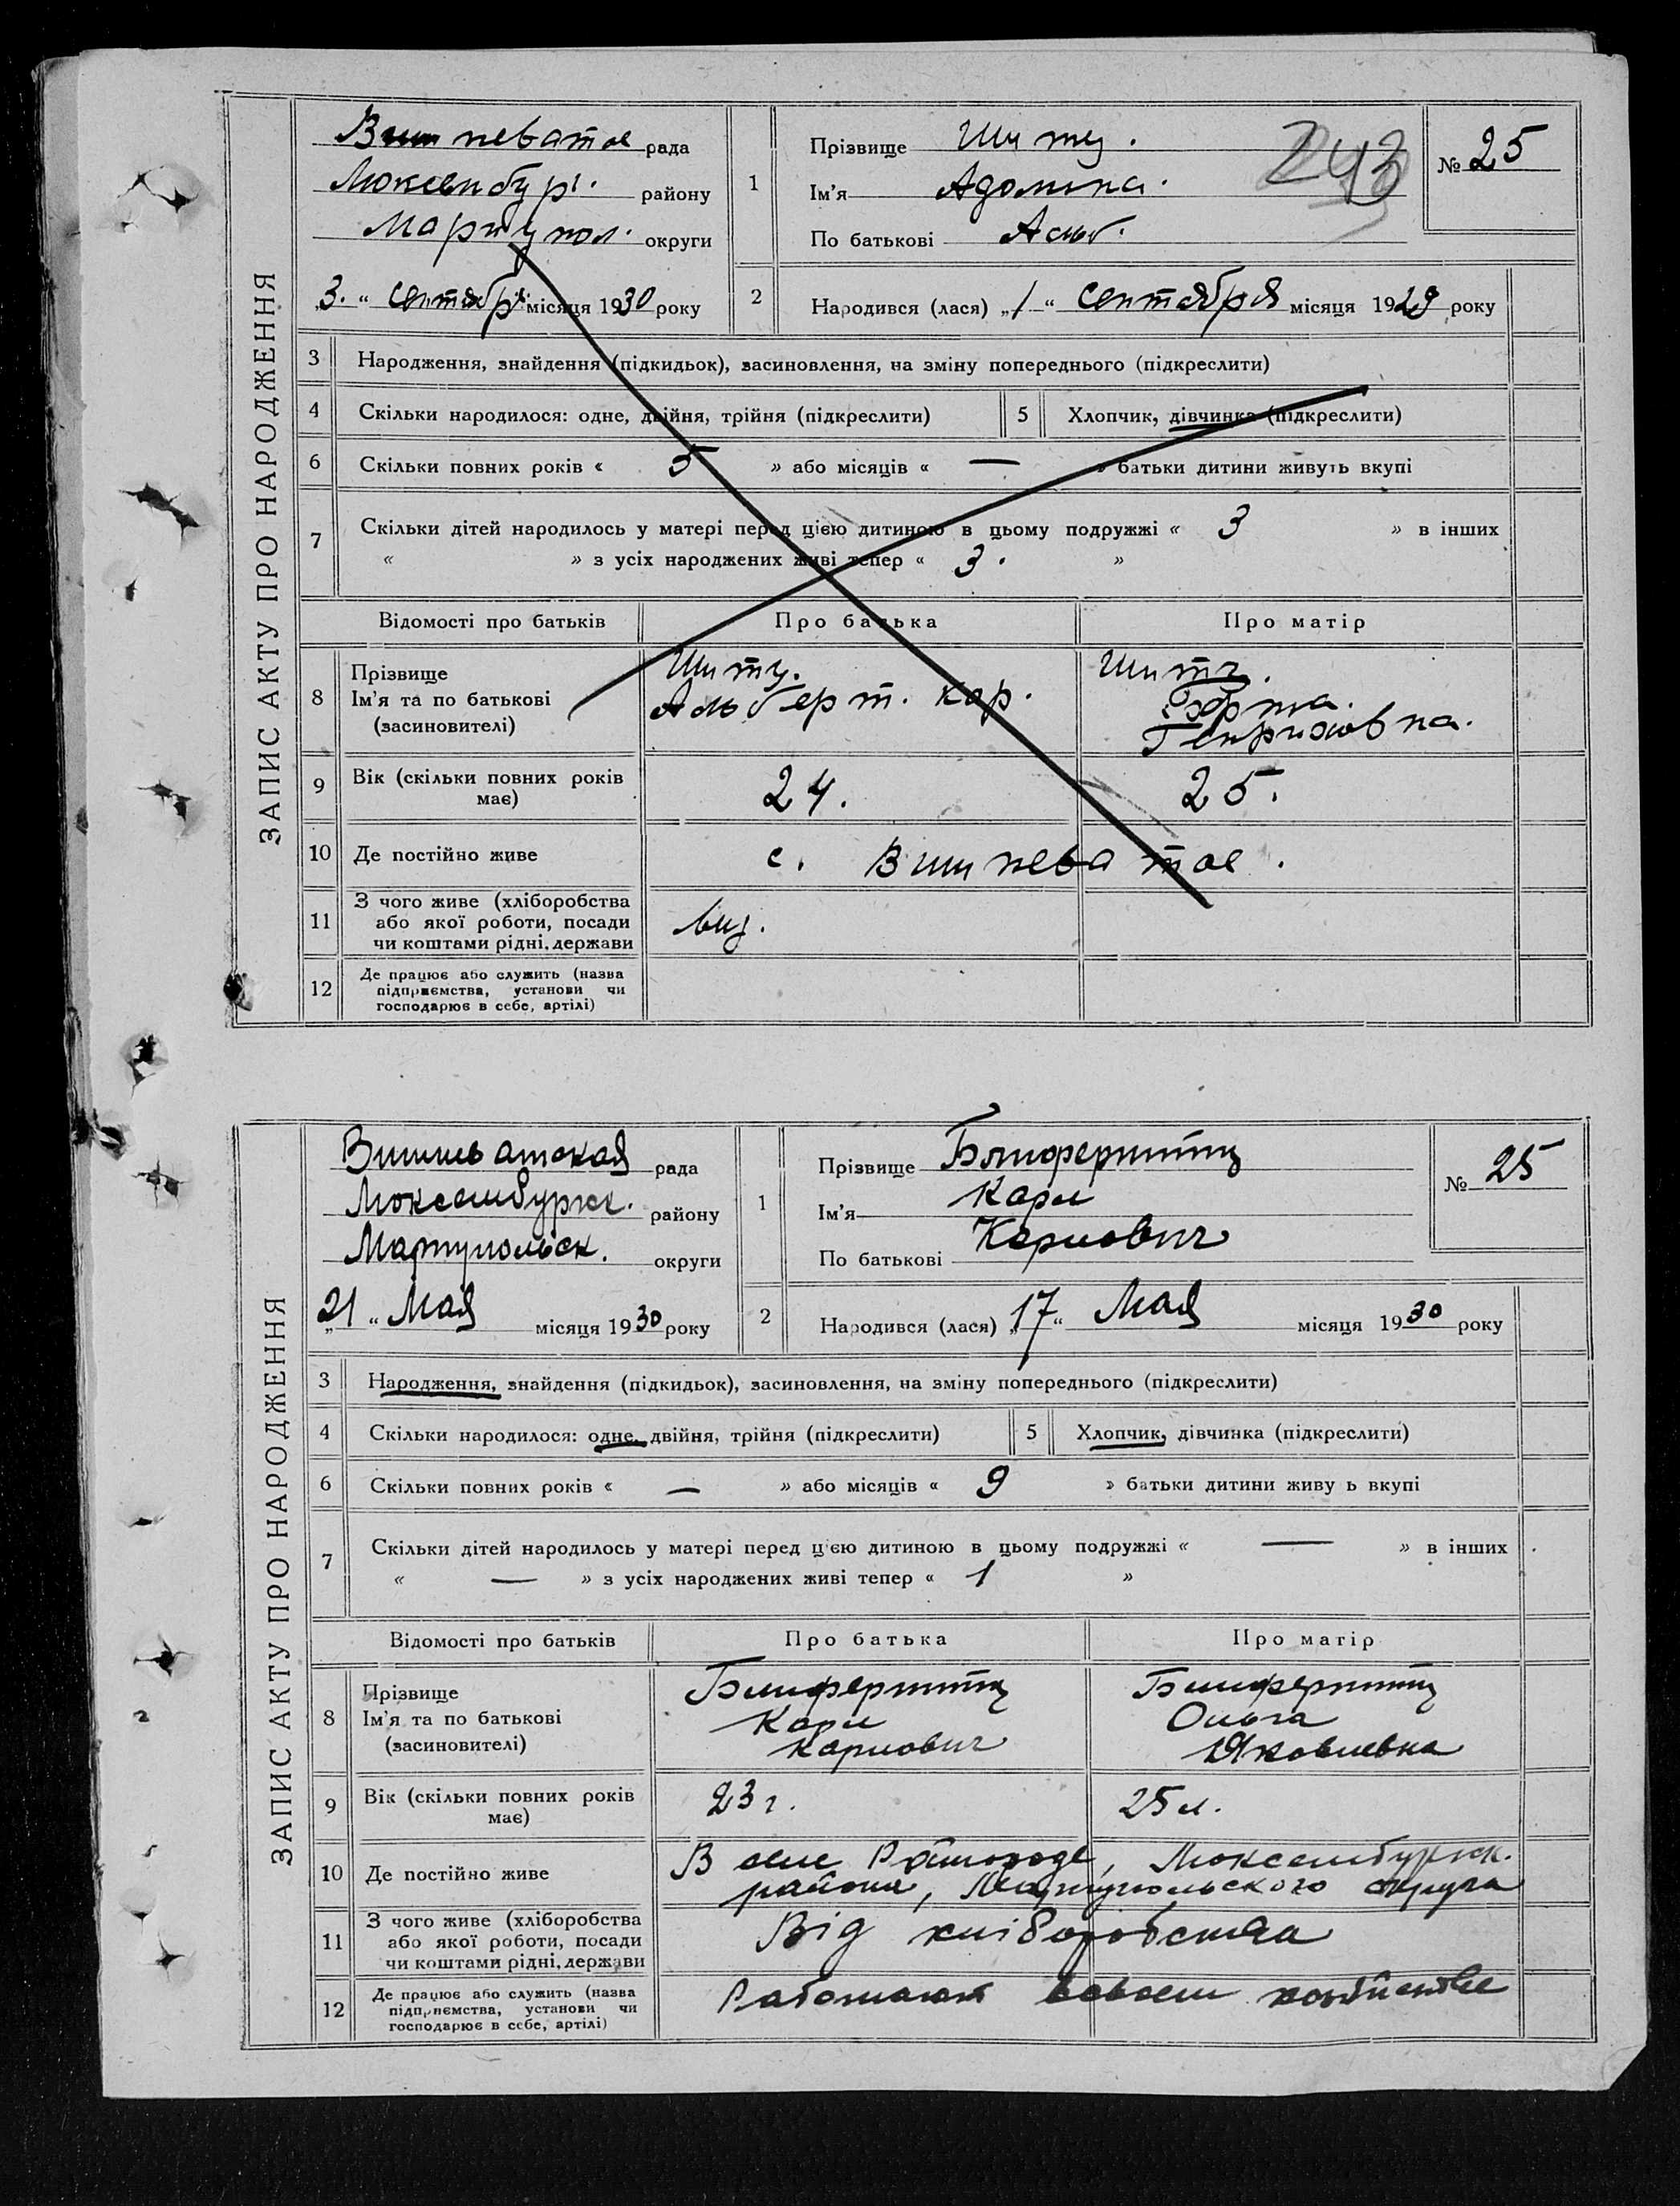 ЗАПИС АКТУ ПРО НАРОДЖЕННЯ
Вишневатое рада
Люксенбург. району
Мариупол. округи
„3." Сентября місяця 1930 року
1
Прізвище Шитц.
Ім'я Адолина.
По батькові Альб.
243
№ 25
2
Народився (лася) „1" Сентября місяця 1929 року
3 Народження, знайдення (підкидьок), засиновлення, на зміну попереднього (підкреслити)
4 Скільки народилося: одне, двійня, трійня (підкреслити) 5 Хлопчик, дівчинка (підкреслити)
6 Скільки повних років « 5 » або місяців « — » батьки дитини живуть вкупі
7 Скільки дітей народилось у матері перед цією дитиною в цьому подружжі « 3 » в інших
« » з усіх народжених живі тепер « 3. »
Відомості про батьків Про батька Про матір
8
Прізвище
Ім'я та по батькові
(засиновителі)
Шитц.
Альберт. Кар.
Шитц.
Генриховна.
9 Вік (скільки повних років має) 24. 25.
10 Де постійно живе с. Вишневатое.
11 З чого живе (хліборобства
або якої роботи, посади
чи коштами рідні, держави
12 Де працює або служить (назва
підприємства, установи чи
господарює в себе, артілі)
ЗАПИС АКТУ ПРО НАРОДЖЕННЯ
Вишневатская рада
Люксембургск. району
Мариупольск. округи
„21" Мая місяця 1930 року
1
Прізвище Блиферниттц
Ім'я Карл
По батькові Карлович
№ 25
2
Народився (лася) „17" Мая місяця 1930 року
3 Народження, знайдення (підкидьок), засиновлення, на зміну попереднього (підкреслити)
4 Скільки народилося: одне, двійня, трійня (підкреслити) 5 Хлопчик, дівчинка (підкреслити)
6 Скільки повних років « — » або місяців « 9 » батьки дитини живу ь вкупі
7 Скільки дітей народилось у матері перед цією дитиною в цьому подружжі « — » в інших
« — » з усіх народжених живі тепер « 1 »
Відомості про батьків Про батька Про матір
8
Прізвище
Ім'я та по батькові
(засиновителі)
Блиферниттц
Карл
Карлович
Блиферниттц
Ольга
Яковлевна
9 Вік (скільки повних років має) 23 г. 25 л.
10 Де постійно живе В селе Райгороде, Люксембургск.
района, Мариупольского округа
11 З чого живе (хліборобства
або якої роботи, посади
чи коштами рідні, держави
Від хліборобства
12 Де працює або служить (назва
підприємства, установи чи
господарює в себе, артілі)
Работают в своем хозяйстве